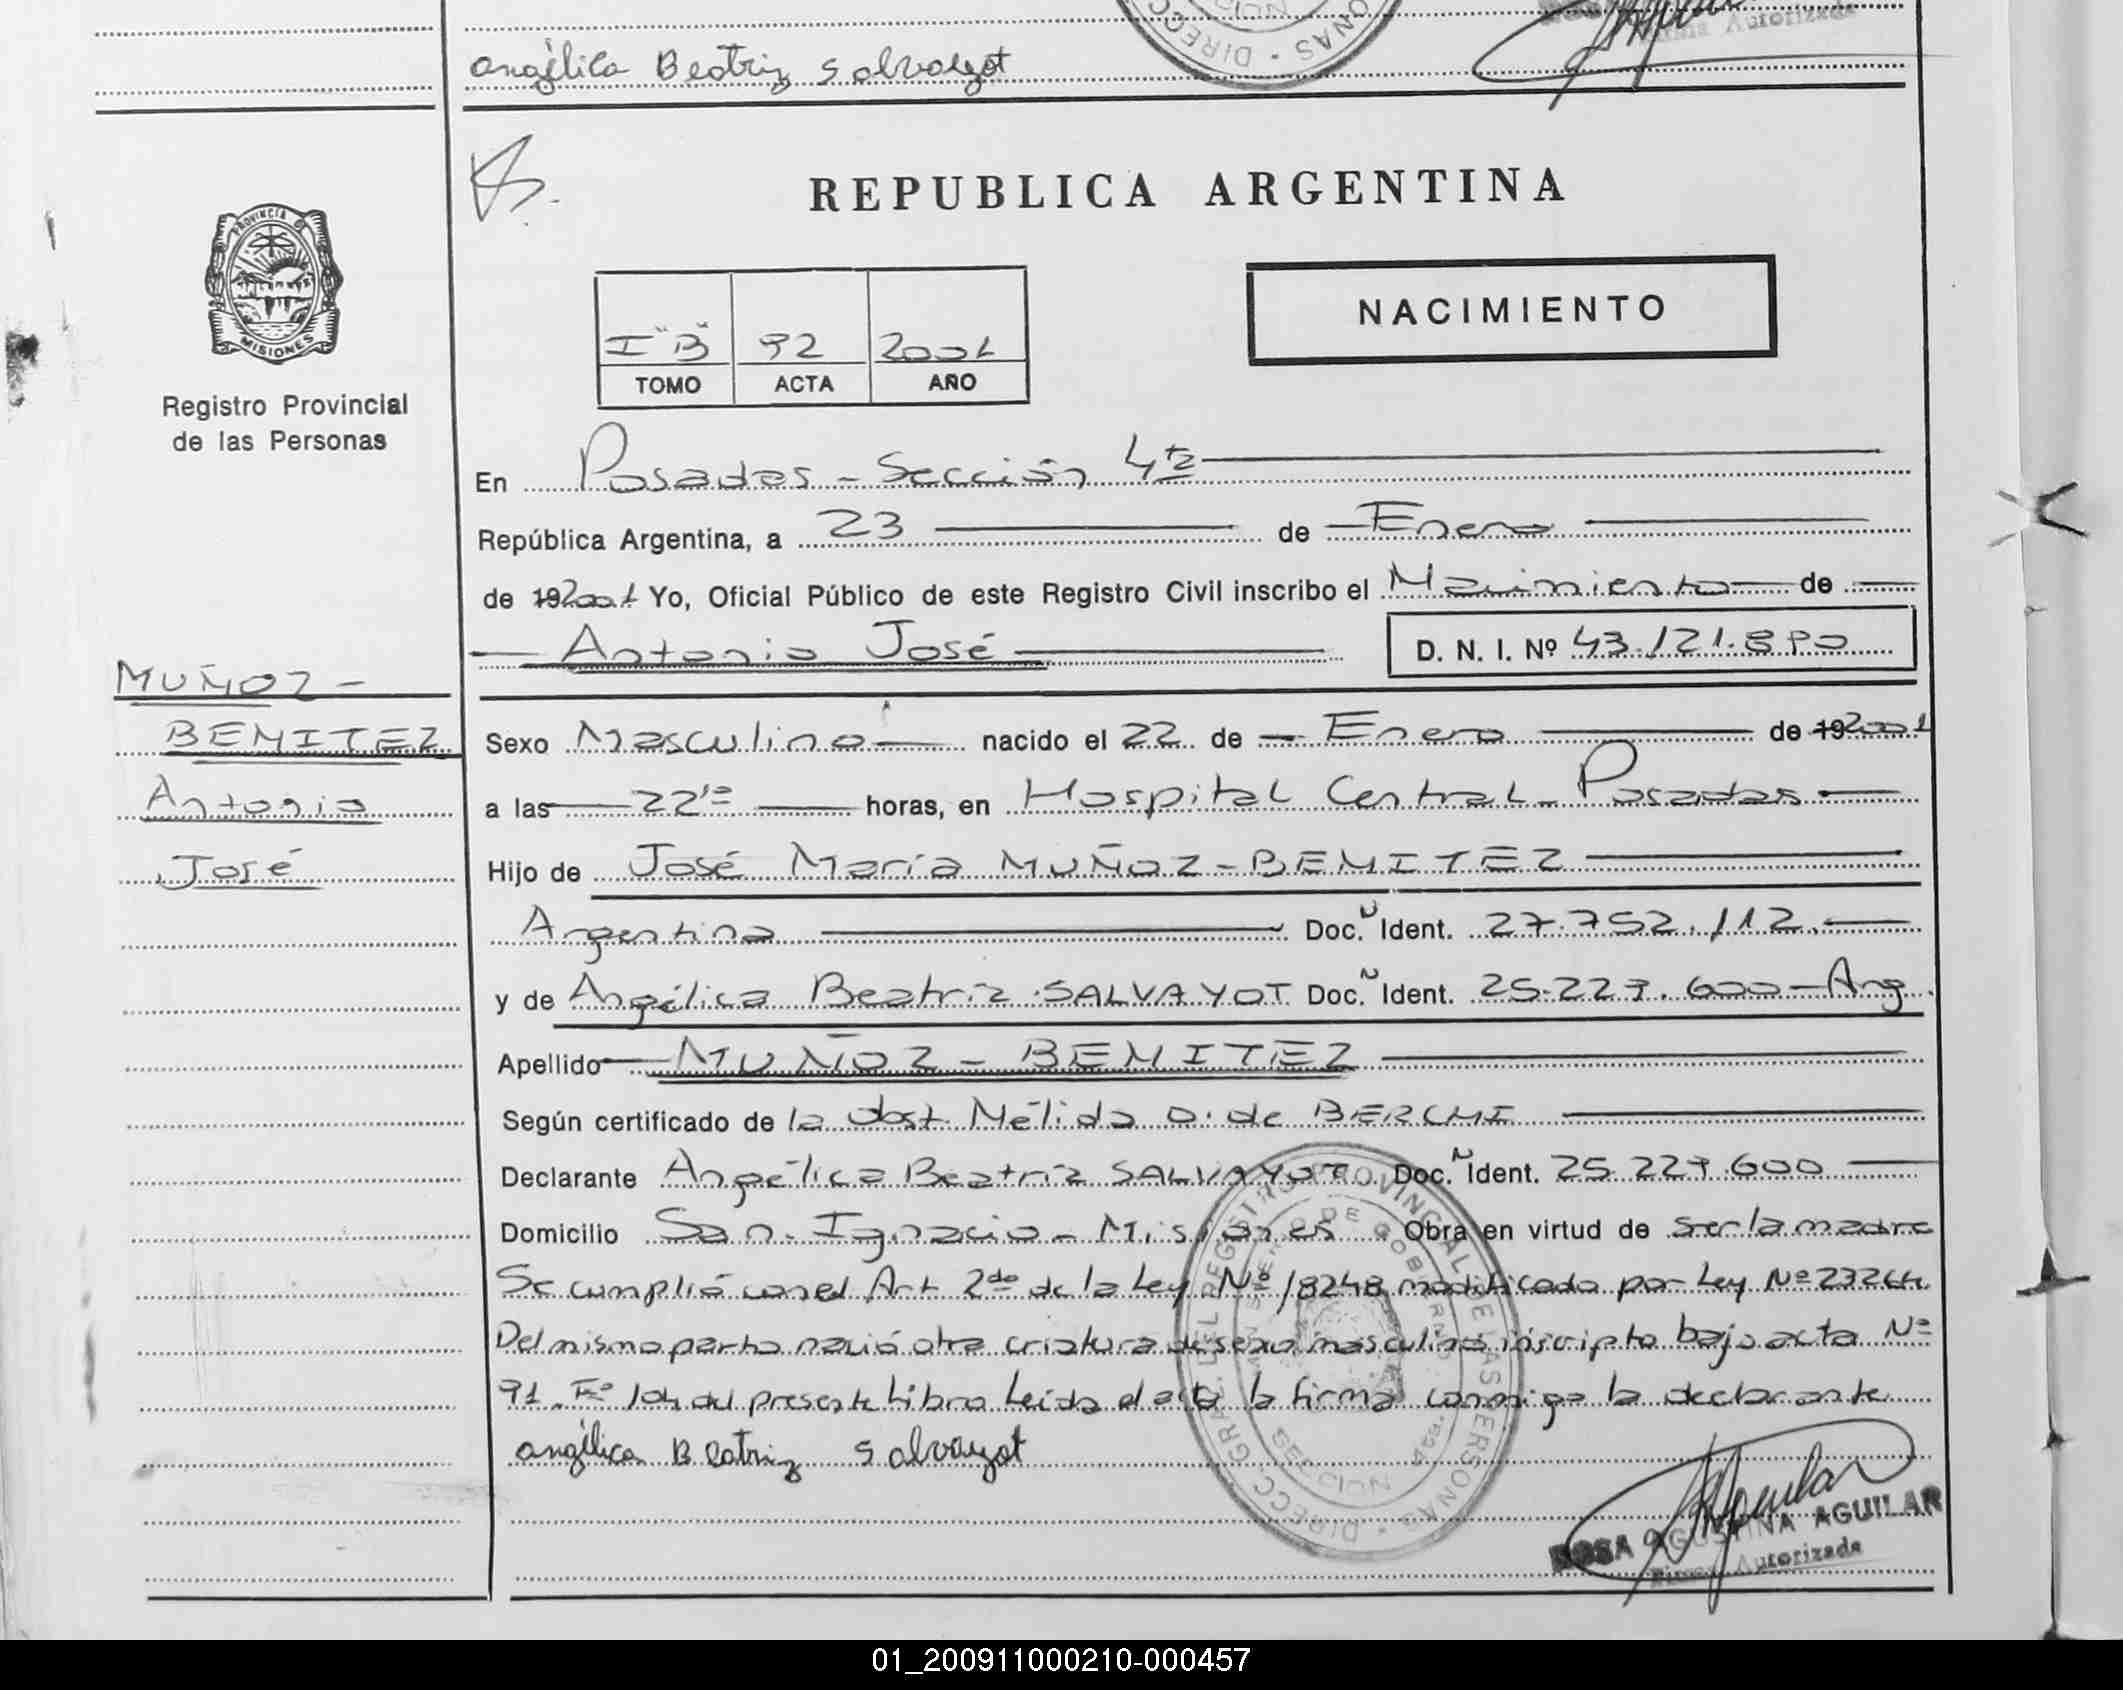 Angélica Beatriz Salvayot
Autorizada
REPUBLICA ARGENTINA
PROVINCIA DE
MISIONES
Registro Provincial
de las Personas
I "B" 92 2001
TOMO ACTA AÑO
NACIMIENTO
En Posadas - Sección 4ta
República Argentina, a 23 de Enero
de 19 2001 Yo, Oficial Público de este Registro Civil inscribo el Nacimiento de
Antonio José D. N. I. Nº 43.121.890
MUÑOZ -
BENITEZ
Antonio
José
Sexo Masculino nacido el 22 de Enero de 19 2001
a las 22'10 horas, en Hospital Central - Posadas
Hijo de José María MUÑOZ - BENITEZ
Argentina Doc. N Ident. 27.752.112.
y de Angélica Beatriz SALVAYOT Doc. N Ident. 25.227.600 - Arg.
Apellido MUÑOZ - BENITEZ
Según certificado de la obst. Nélida O. de BERCHI
Declarante Angélica Beatriz SALVAYOT Doc. N Ident. 25.227.600
Domicilio San Ignacio - Misiones Obra en virtud de ser la madre
Se cumplió con el Art 2do de la Ley Nº 18248 modificado por Ley Nº 23264.
Del mismo parto nació otra criatura de sexo masculino inscripto bajo acta Nº
91. Fº 104 del presente Libro Leída el acta la firma conmigo la declarante
Angélica Beatriz Salvayot
DIRECC. GRAL. DEL REGISTRO PROVINCIAL DE LAS PERSONAS
MINISTERIO DE GOBIERNO
SECCION 4ta.
ROSA AGUSTINA AGUILAR
Firma Autorizada
01_200911000210-000457